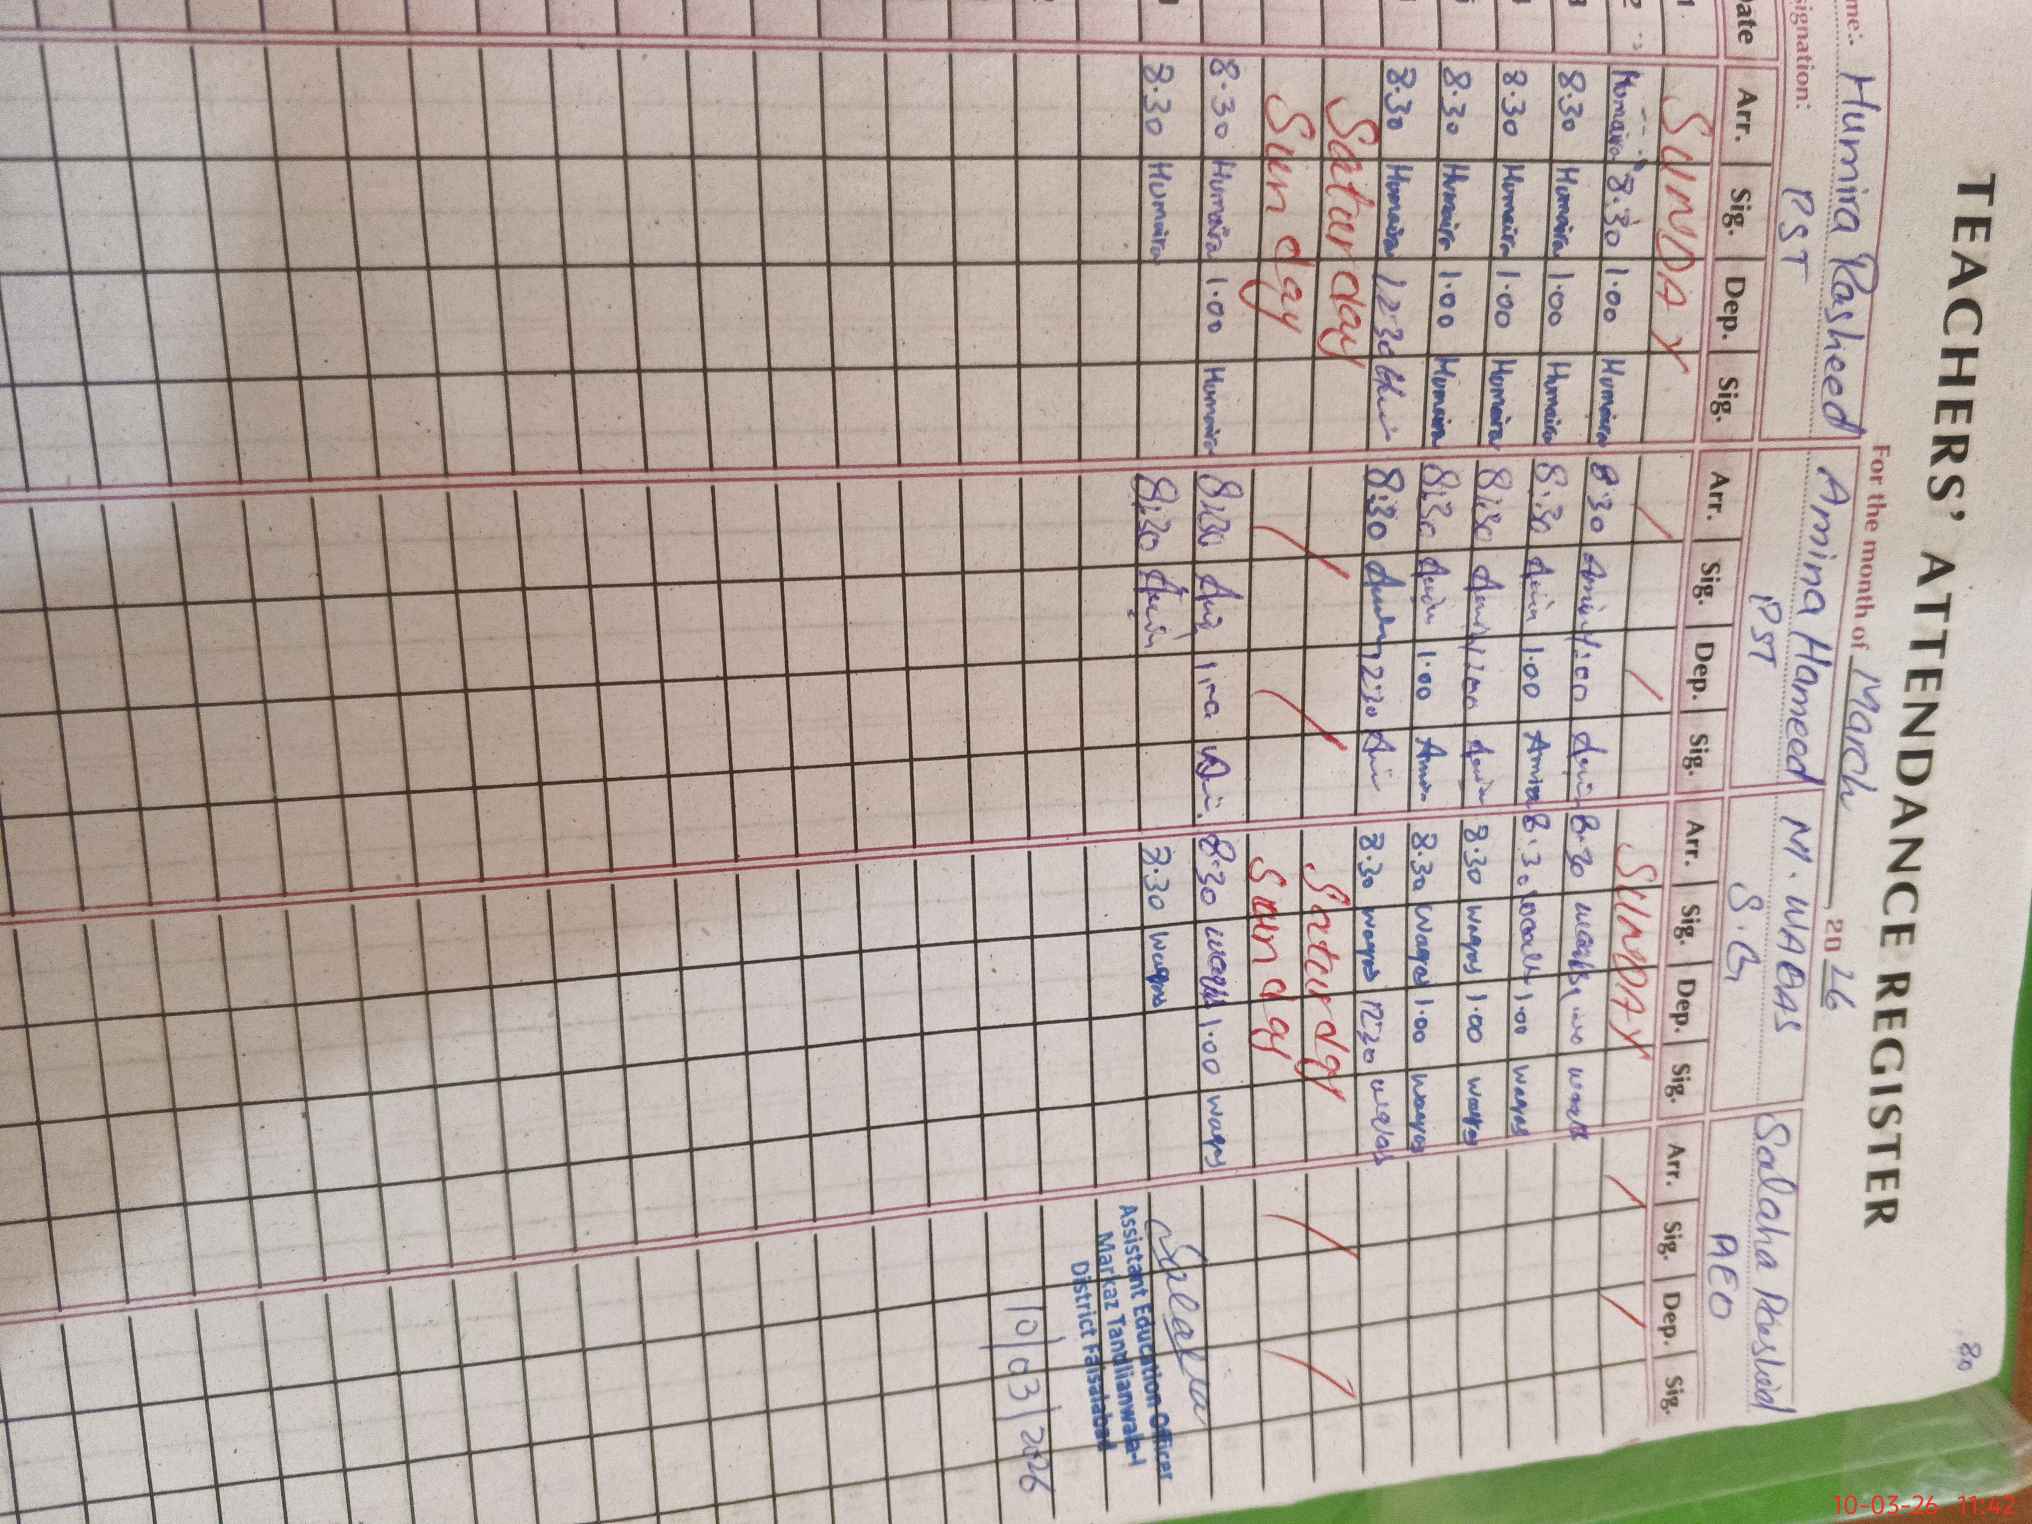 80
TEACHERS' ATTENDANCE REGISTER
For the month of March 2026
me:- Humira Rasheed Amina Hameed M. WAQAS Salaha Rasheed
signation: PST PST S.G AEO
ate Arr. Sig. Dep. Sig. Arr. Sig. Dep. Sig. Arr. Sig. Dep. Sig. Arr. Sig. Dep. Sig.
1. SUNDAY SUNDAY
2 Humaira 8.30 1.00 Humaira 8:30 Amin 1:00 8.30 1.00
3 8.30 Humaira 1.00 Humaira 8:30 1.00 Amina 8.30 1.00 waqas
8.30 Humaira 1.00 Humaira 8:30 8.30 waqas 1.00 waqas
8.30 Humaira 1.00 Humaira 8:30 1.00 8.30 waqas 1.00 waqas
8.30 Humaira 12:30 8:30 12:30 8.30 waqas 12:30 waqas
Saturday Saturday
Sunday Sunday
8.30 Humaira 1.00 Humaira 8:30 8:30 waqas 1.00 waqas
8.30 Humaira 8:30 8.30 waqas Salaha
Assistant Education Officer
Markaz Tandlianwala-I
District Faisalabad
10/03/2026
10-03-26 11:42